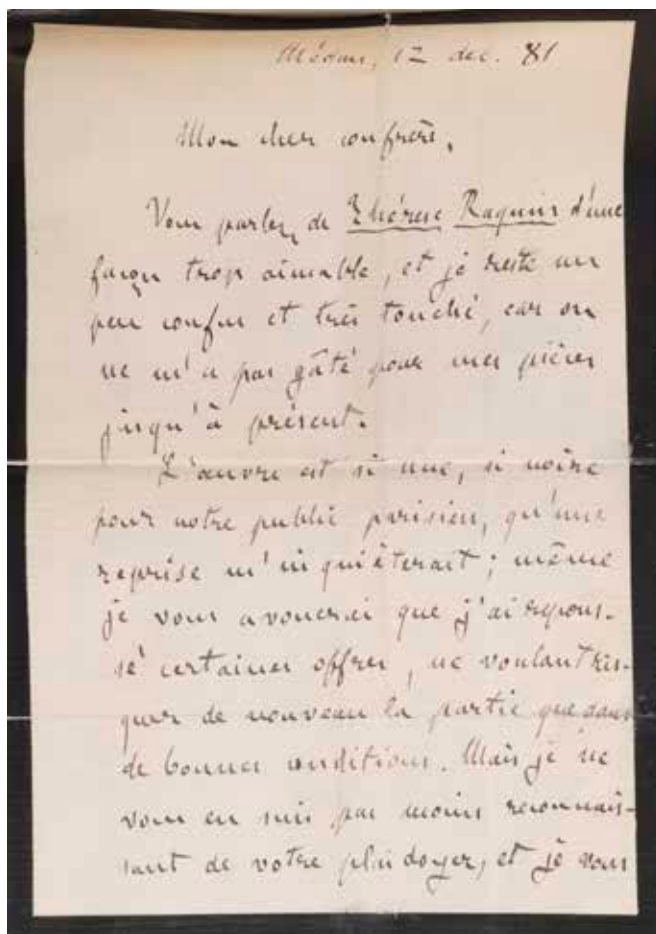 Médan, 12 déc. 81
Mon cher confrère,
Vous parlez de Thérèse Raquin d'une
façon trop aimable, et je reste un
peu confus et très touché, car on
ne m'a pas gâté pour mes pièces
jusqu'à présent.
L'œuvre est si nue, si noire
pour notre public parisien, qu'une
reprise m'inquièterait ; même
je vous avouerai que j'ai repous-
sé certaines offres, ne voulant ris-
quer de nouveau la partie que dans
de bonnes conditions. Mais je ne
vous en suis pas moins reconnais-
sant de votre plaidoyer, et je vous